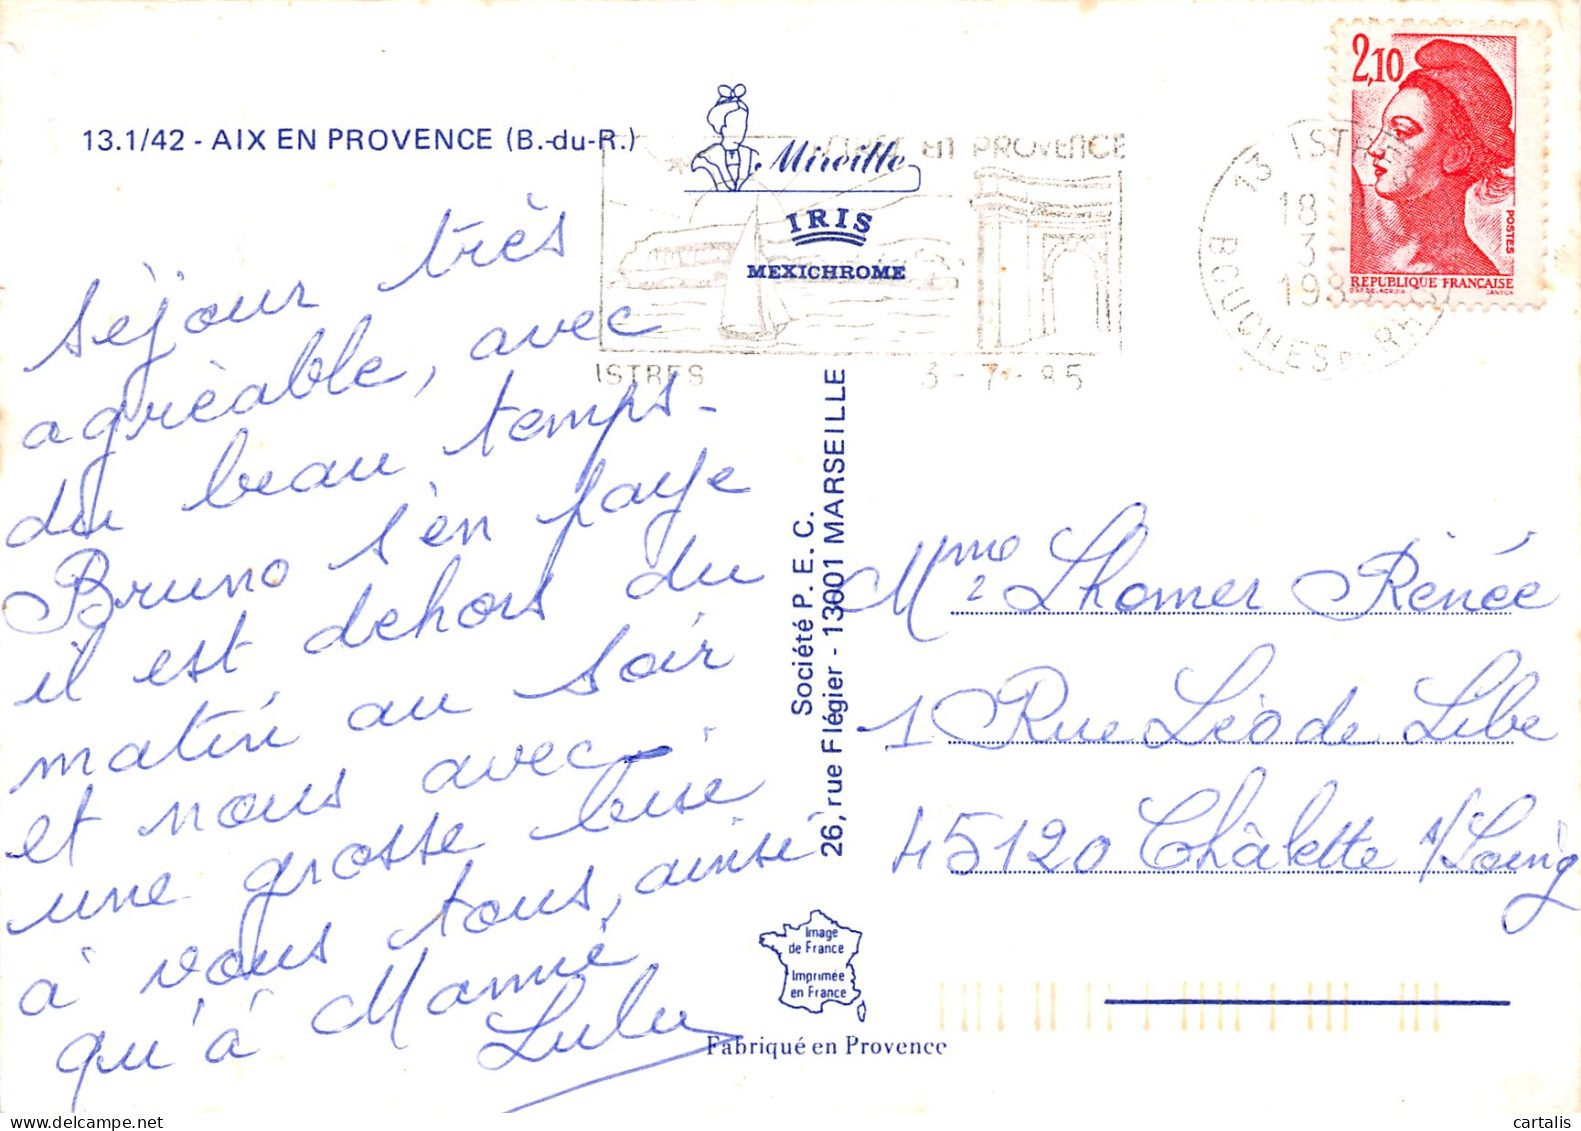 13.1/42 - AIX EN PROVENCE (B.-du-R.)
Mireille
IRIS
MEXICHROME
EN PROVENCE
ISTRES
3-7-85
13 ISTRES
18
3-
198
BOUCHES DU RH
2,10
POSTES
REPUBLIQUE FRANÇAISE
séjour très
agréable, avec
du beau temps-
Bruno s'en paye
il est dehors du
matin au soir
et nous avec-
une grosse bise
à vous tous, ainsi
qu'à Mamie
Lulu
Société P. E. C.
26, rue Flégier - 13001 MARSEILLE
Mme Lhomer Renée
1 Rue Léo de Libe
45120 Châlette s/Loing
Image
de France
Imprimée
en France
Fabriqué en Provence
www.delcampe.net
cartalis